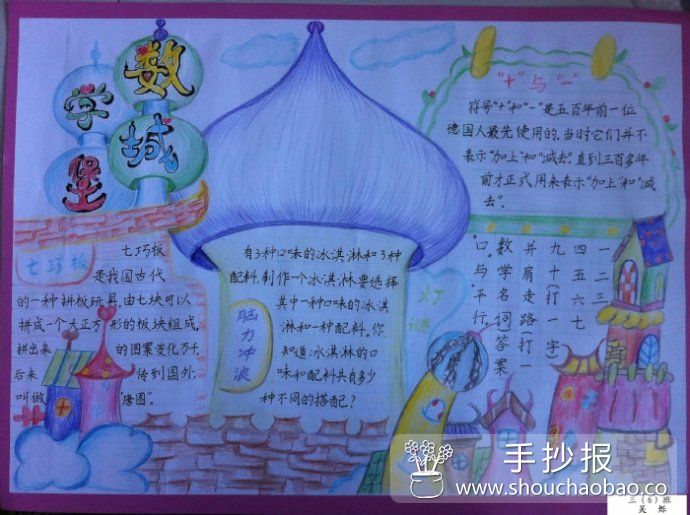 数学城堡
"+"与"-"
符号"+"和"-"是五百年前一位
德国人最先使用的,当时它们并不
表示"加上"和"减去".直到三百多年
前才正式用来表示"加上"和"减
去"。
七巧板
七巧板
是我国古代
的一种拼板玩具,由七块可以
拼成一个大正方形的板块组成,
拼出来的图案变化万千,
后来传到国外,
叫做"唐图"。
脑力冲浪
有3种口味的冰淇淋和3种
配料,制作一个冰淇淋要选择
其中一种口味的冰淇
淋和一种配料。你
知道冰淇淋的口
味和配料共有多少
种不同的搭配?
灯谜
一二三
四五六七
九十(打一字)
并肩走路(打一
数学名词)答案
:口与平行。
手抄报
www.shouchaobao.co
三(6)班
吴烁